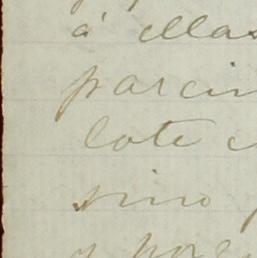 á ellas
parcin
lote
sino
y por